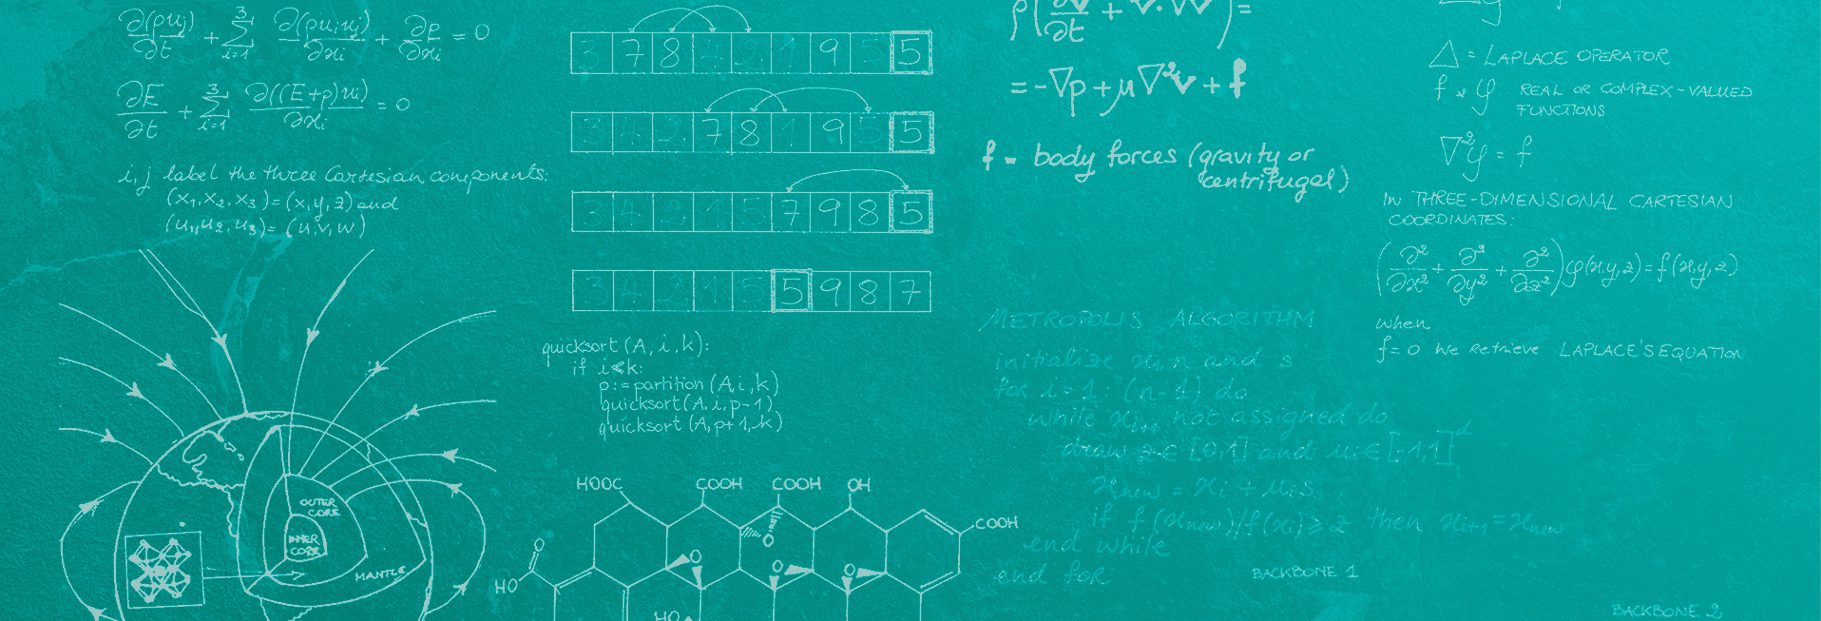 ∂(ρuj)/∂t + 3∑i=1 ∂(ρuiuj)/∂xi + ∂p/∂xi = 0
∂E/∂t + 3∑i=1 ∂((E+p)ui)/∂xi = 0
i,j label the three Cartesian components:
(x1,x2,x3)=(x,y,z) and
(u1,u2,u3)=(u,v,w)
OUTER CORE
INNER CORE
MANTLE
3 7 8 4 2 1 9 5 5
3 4 2 7 8 1 9 5 5
3 4 2 1 5 7 9 8 5
3 4 2 1 5 5 9 8 7
quicksort (A, i, k):
if i<k:
p := partition (A, i, k)
quicksort (A, i, p-1)
quicksort (A, p+1, k)
HOOC
COOH
COOH
OH
COOH
O
HO
O
O
O
O
HO
ρ(∂v/∂t + v·∇v) =
= -∇p + μ∇²v + f
f = body forces (gravity or
centrifugal)
METROPOLIS ALGORITHM
initialize x1, n and s
for i=1 : (n-1) do
while xi+1 not assigned do
draw z ∈ [0,1] and ui ∈ [-1,1]d
xnew = xi + uis
if f(xnew)/f(xi) ≥ z then xi+1 = xnew
end while
end for
BACKBONE 1
△ = LAPLACE OPERATOR
f & φ REAL OR COMPLEX-VALUED
FUNCTIONS
∇²φ = f
IN THREE-DIMENSIONAL CARTESIAN
COORDINATES:
(∂²/∂x² + ∂²/∂y² + ∂²/∂z²)φ(x,y,z) = f(x,y,z)
when
f=0 We Retrieve LAPLACE'S EQUATION
BACKBONE 2